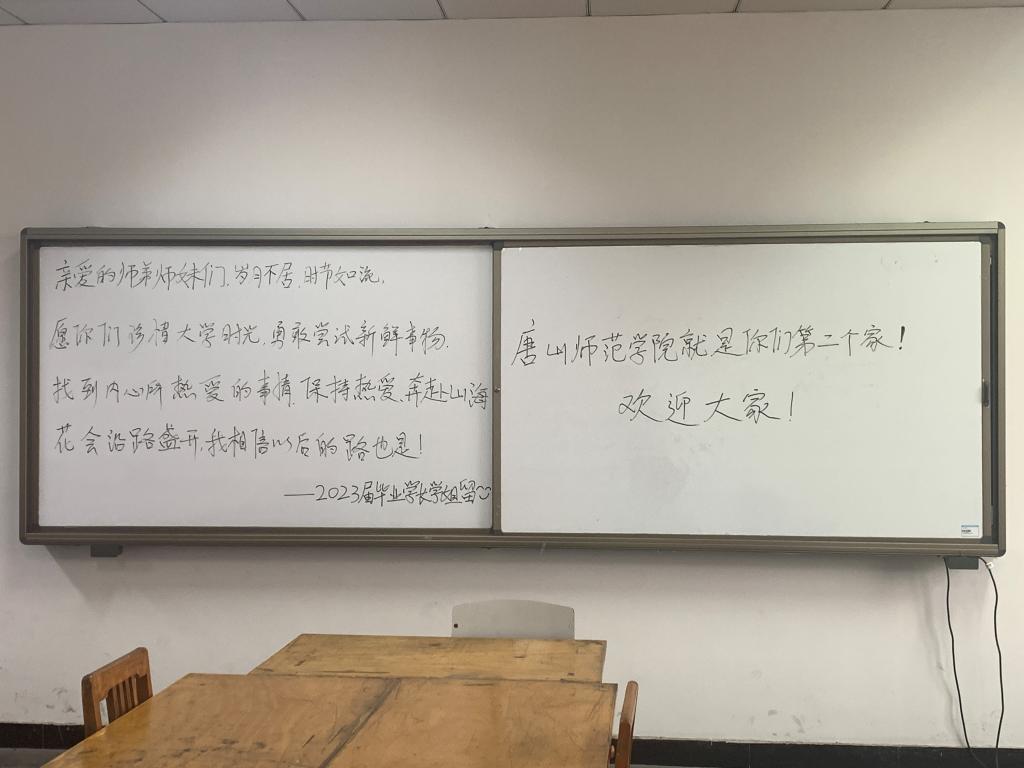 亲爱的师弟师妹们，岁月不居，时节如流，
愿你们珍惜大学时光，勇敢尝试新鲜事物，
找到内心所热爱的事情，保持热爱，奔赴山海
花会沿路盛开，我相信以后的路也是！
——2023届毕业学长学姐留
唐山师范学院就是你们第二个家！
欢迎大家！